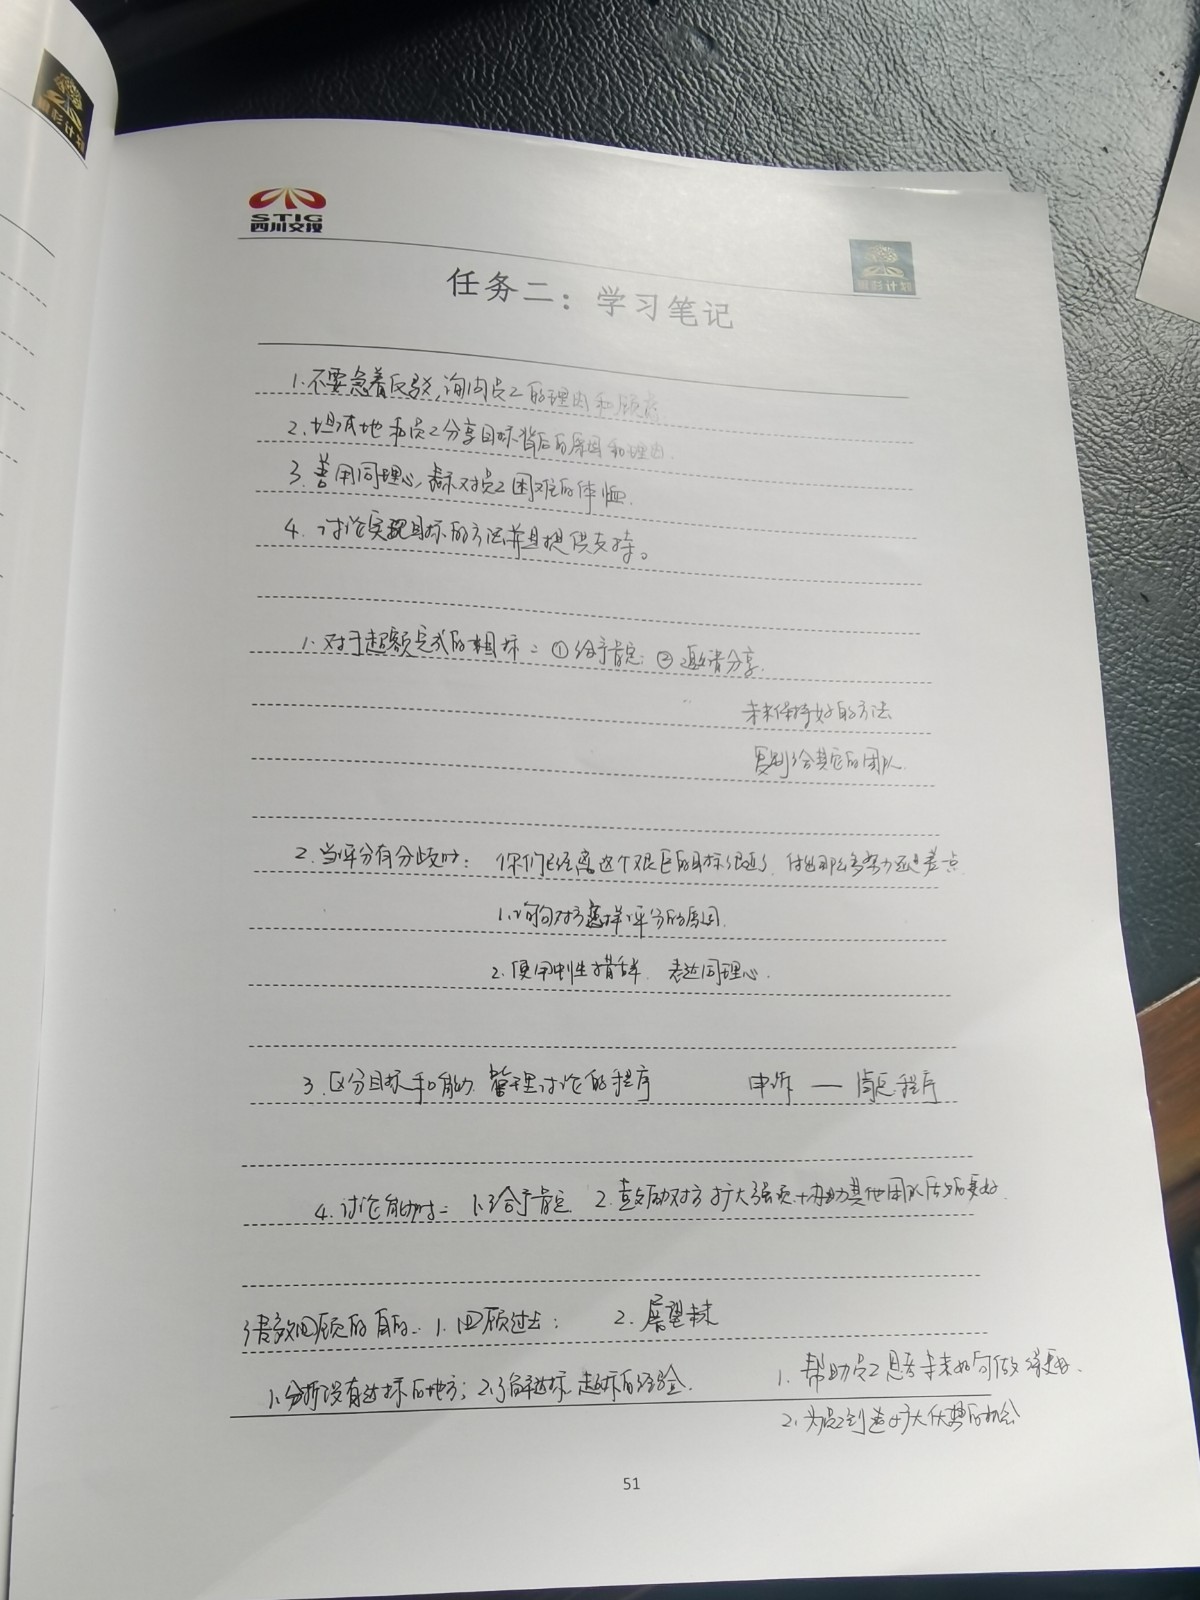 STIG
四川交投
任务二：学习笔记
1.不要急着反驳，询问员工的理由和顾虑
2.坦诚地和员工分享目标背后的原因和理由.
3.善用同理心，表示对员工困难的体恤.
4.讨论实现目标的方法并且提供支持。
1.对于超额完成的目标：①给予肯定；②邀请分享.
未来保持好的方法
复制给其它的团队.
2.当评分有分歧时： 你们已经离这个艰巨的目标很近了，付出那么多努力还是差点
1.询问对方怎样评分的原因.
2.使用中性措辞. 表达同理心.
3.区分目标和能力. 管理讨论的程序 申诉 — 程序
4.讨论能力时： 1.给予肯定 2.鼓励对方扩大强项+协助其他团队后更好.
绩效回顾的目的：1.回顾过去： 2.展望未来
1.分析没有达标的地方；2.了解达标、超标的经验. 1.帮助员工思考未来如何做得更好.
2.为员工创造扩大优势的机会
51